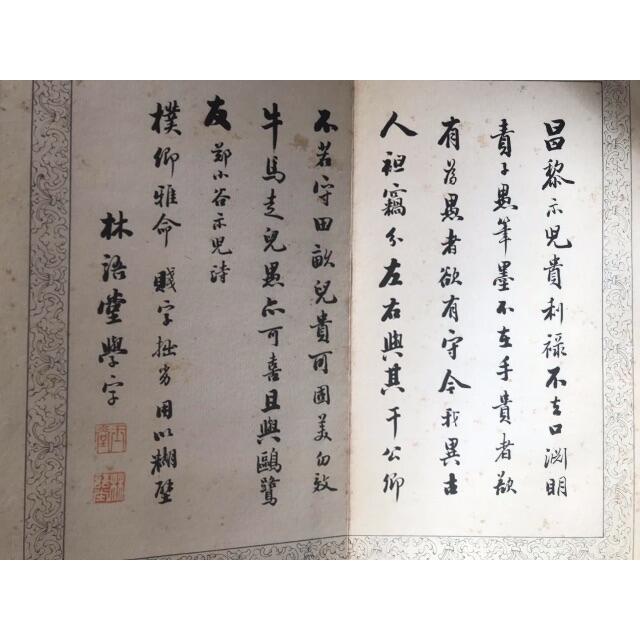 昌黎示兒貴利祿不去口淵明
責子愚筆墨不在手貴者欲
有為愚者欲有守今我異古
人袒竊分左右與其干公卿
不若守田畝兒貴可圖美勿效
牛馬走兒愚亦可喜且與鷗鷺
友 鄭小谷示兒詩
樸卿雅命 賤字拙劣用以糊壁
林語堂學字